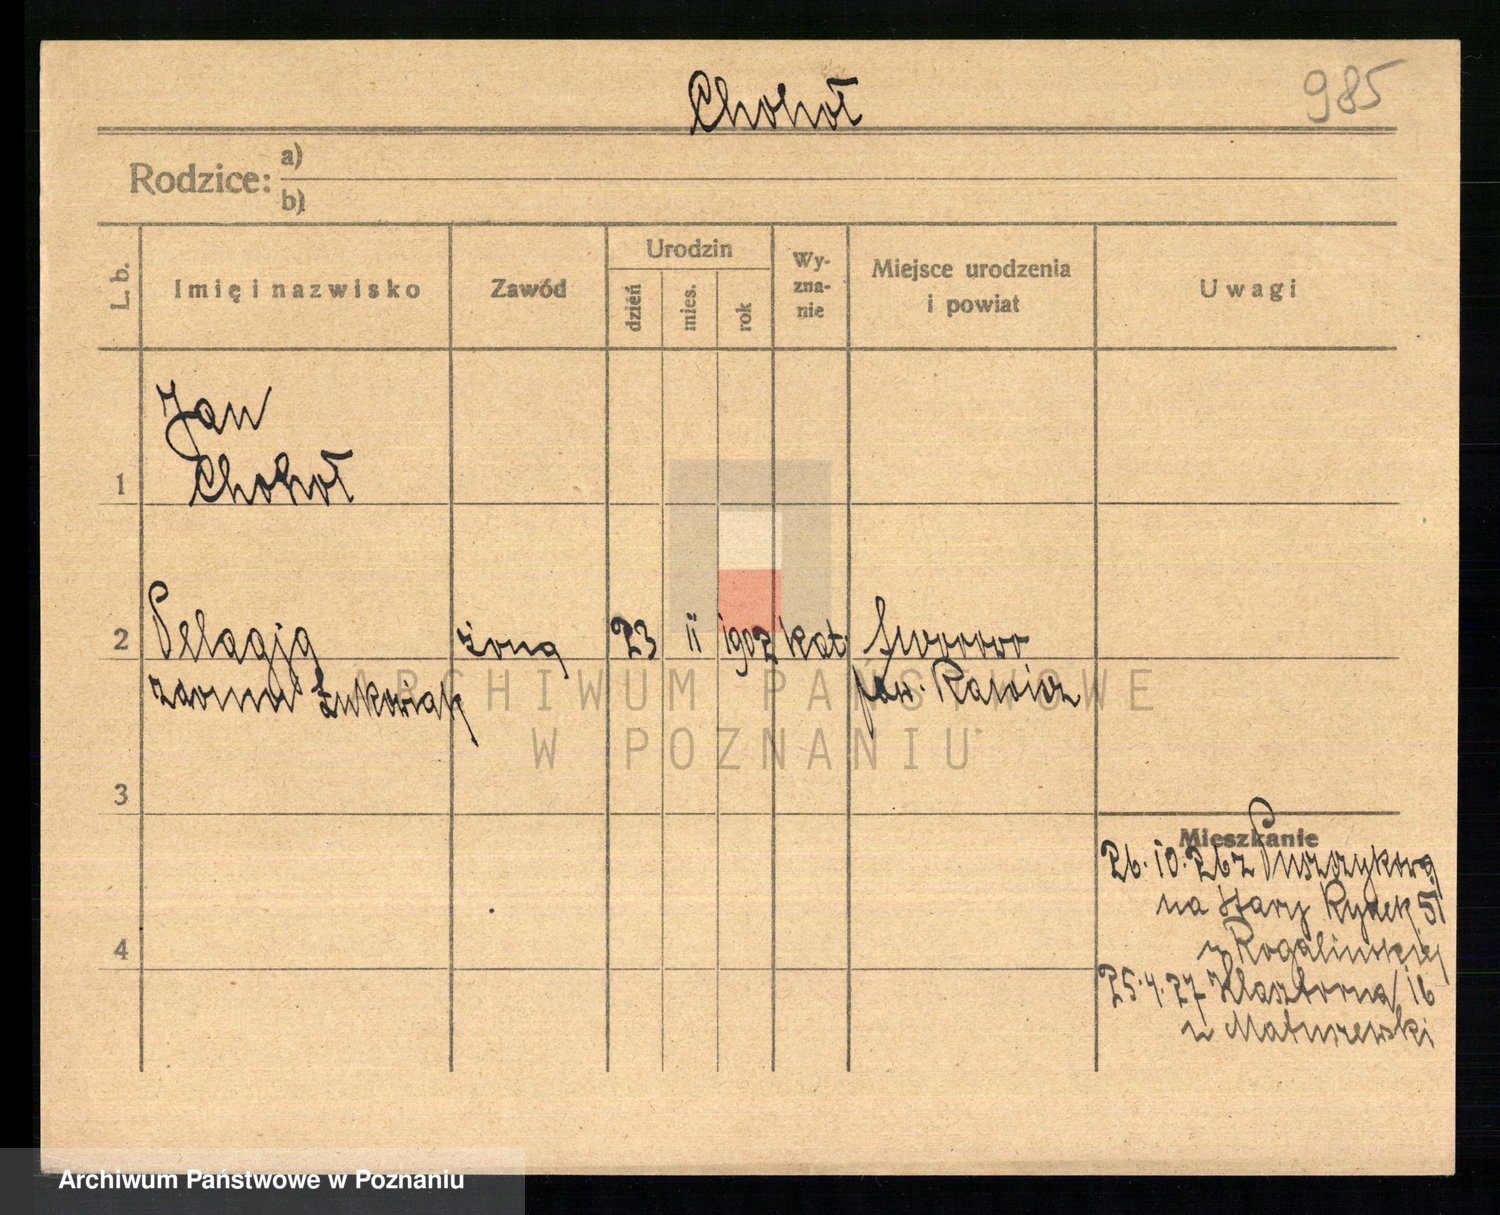 Chohoł
985
Rodzice: a)
b)
L. b.
Imię i nazwisko
Zawód
Urodzin
dzień
mies.
rok
Wy-
zna-
nie
Miejsce urodzenia
i powiat
Uwagi
Jan
1 Chohoł
2 Pelagja żona 23 II 1902 kat.
zdomu Łukowiak pow. Rawicz
ARCHIWUM PAŃSTWOWE
W POZNANIU
3
Mieszkanie
26.10.26 z Puszczykowa
na Stary Rynek 51
u Rogalińskiej
4
25.4.27 Klasztorna 16
u Matuszewski
Archiwum Państwowe w Poznaniu